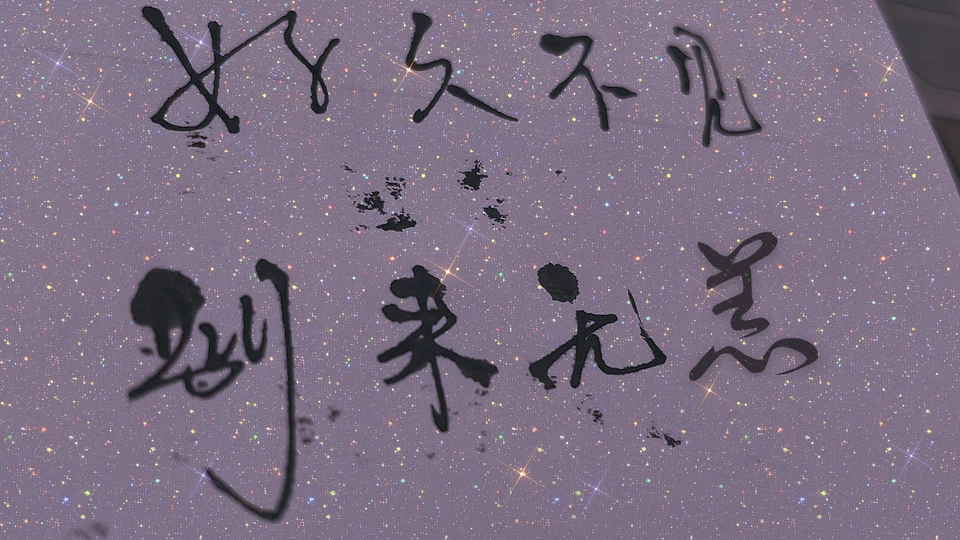 好久不见
别来无恙